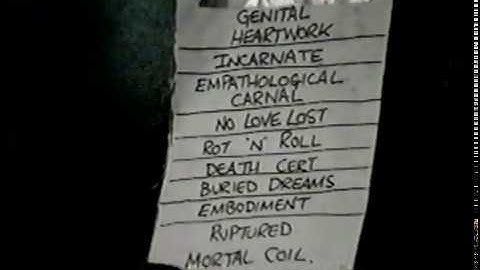 GENITAL
HEARTWORK
INCARNATE
EMPATHOLOGICAL
CARNAL
NO LOVE LOST
ROT 'N' ROLL
DEATH CERT
BURIED DREAMS
EMBODIMENT
RUPTURED
MORTAL COIL.